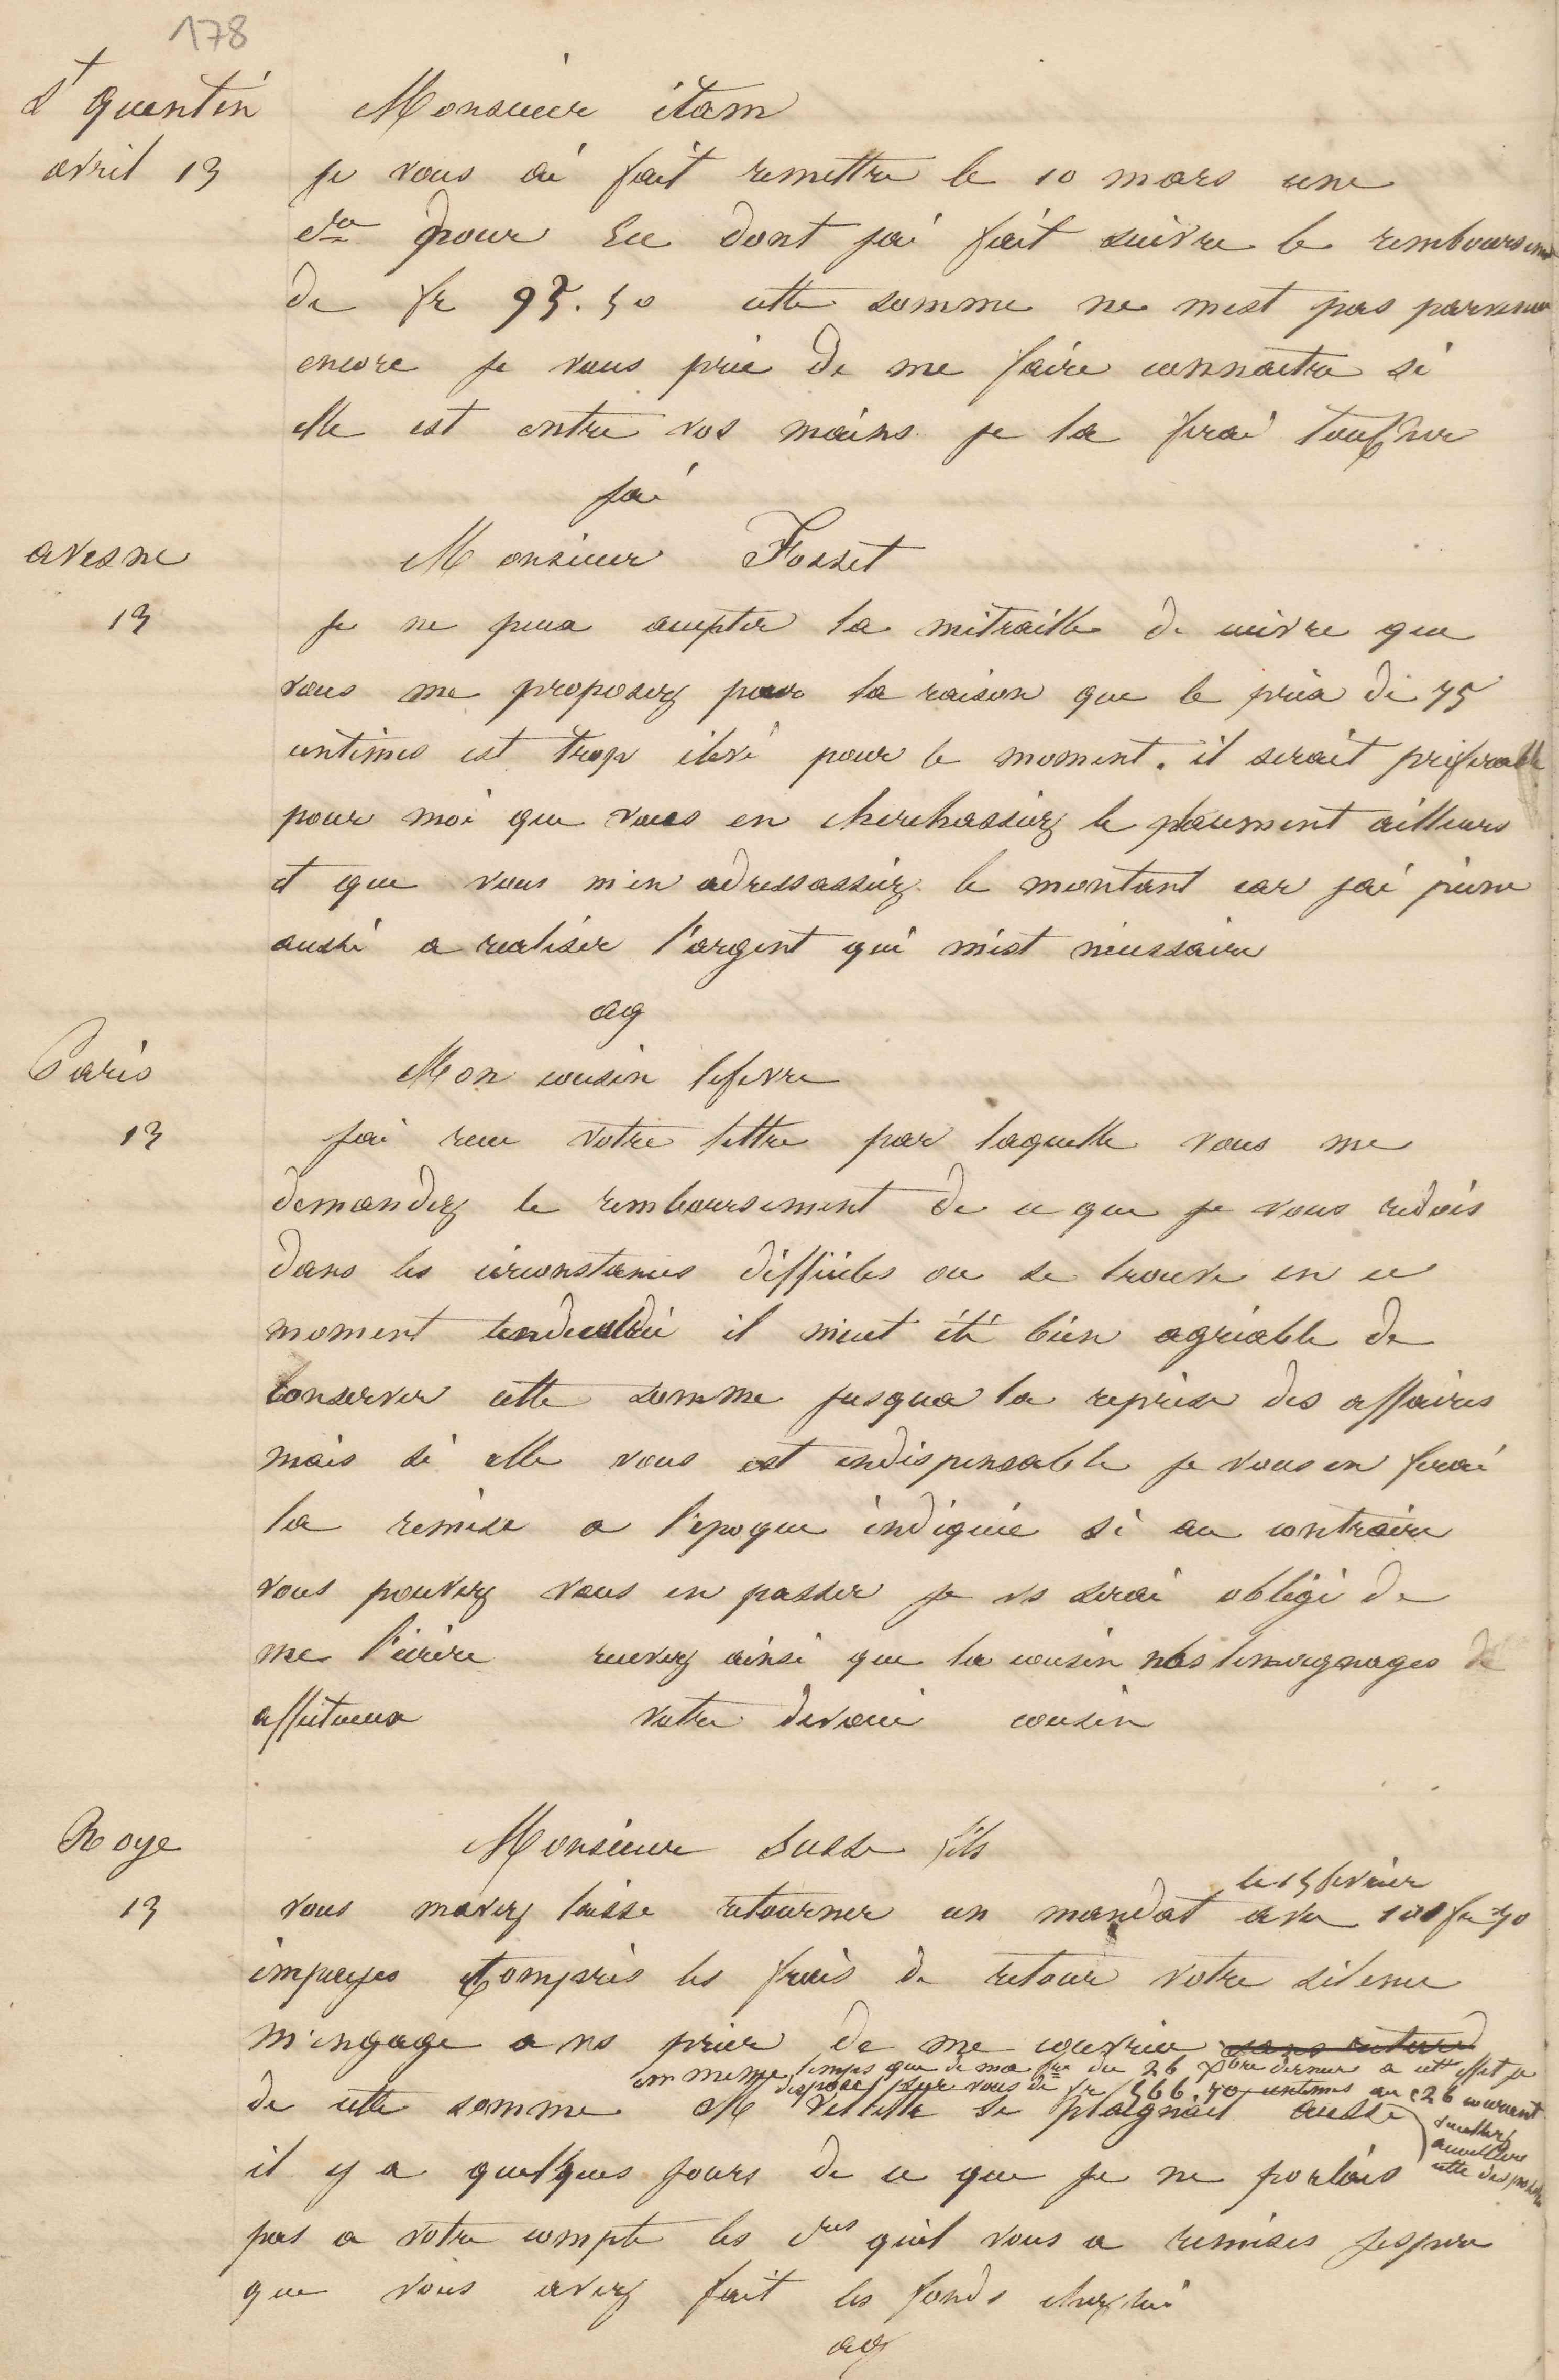 178
St Quentin
Monsieur itam
avril 13
je vous ai fait remettre le 10 mars une
cre pour Eu dont jai fait suivre le remboursemt
de fr 95.50 cette somme ne mest pas parvenue
encore je vous prie de me faire connaitre si
elle est entre vos mains je la ferai toucher
jai
avesne
Monsieur Fosset
13
je ne peux accepter la mitraille de cuivre que
vous me proposez pour la raison que le prix de 75
centimes est trop élevé pour le moment. il serait preferable
pour moi que vous en cherchassiez le placement ailleurs
et que vous m'en adressassiez le montant car jai peine
aussi a realiser l'argent qui m'est nécessaire
ag
Paris
Mon cousin lefevre
13
jai recu votre lettre par laquelle vous me
demandez le remboursement de ce que je vous redois
dans les circonstances difficiles ou se trouve en ce
moment lindustrie il m'eut été bien agréable de
conserver cette somme jusqua la reprise des affaires
mais si elle vous est indispensable je vous en ferai
la remise a l'epoque indiquée si au contraire
vous pouvez vous en passer je vs serai obligé de
me l'ecrire recevez ainsi que la cousin nos temoignages
affectueux votre devoué cousin
Roye
Monsieur Susse fils
le 15 fevrier
13
vous mavez laisse retourner un mandat avec 108 fr 70
impayes compris les frais de retour votre silence
m'engage a vs prier de me couvrir sans retard
en meme temps que de ma fre du 26 Xbre dernier a cet effet je
dispose sur vous de fr 566.70 centimes au 26 courant
veuillez
accueillir
cette disposition
de cette somme Mr se plaignait aussi
il y a quelques jours de ce que je ne portais
pas a votre compte les cres quil vous a remises jespere
que vous avez fait les fonds chez lui
ag